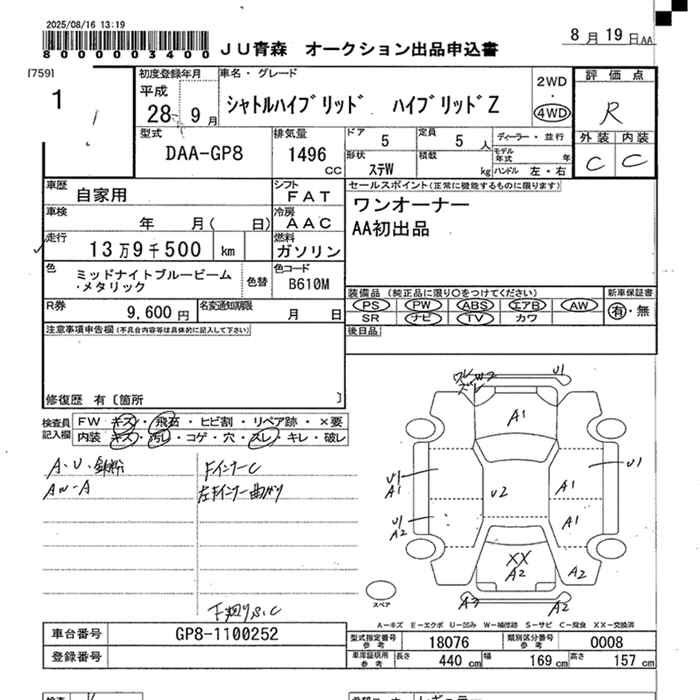 2025/08/16 13:19
80000003400
JU青森 オークション出品申込書
8月19日AA
[759]
1
初度登録年月
平成
28年 9月
車名・グレード
シャトルハイブリッド ハイブリッドZ
2WD
・
4WD
評価点
R
外装 内装
C C
型式
DAA-GP8
排気量
1496
CC
ドア 5
定員 5人
ディーラー・並行
形状 ステW
積載 kg
モデル年式 年
ハンドル 左・右
車歴 自家用
シフト FAT
車検 年 月( 日)
冷房 AAC
走行 13万9千500 km
燃料 ガソリン
色 ミッドナイトブルービーム
・メタリック
色替
色コード B610M
R券 9,600円
名変通知期限 月 日
セールスポイント(正常に機能するものに限ります)
ワンオーナー
AA初出品
装備品(純正品に限り○をつけてください)
PS PW ABS エアB AW
SR ナビ TV カワ
新車保証書
有・無
後日品
注意事項申告欄(不具合内容等は具体的に記入して下さい)
修復歴 有〔箇所 〕
検査員記入欄
FW キズ・飛石・ヒビ割・リペア跡・×要
内装 キズ・汚れ・コゲ・穴・スレ・キレ・破レ
A・U・鉄粉
AW-A
FインナーC
左Fインナー曲がり
下廻りS.C
W2
U1
A1
U1
A1
U2
A1
U1
U1
A2
A1
XX
A2
A2
A2
A2
スペア
A-キズ E-エクボ U-凹み W-補修跡 S-サビ C-腐食 XX-交換済
車台番号 GP8-1100252
登録番号
型式指定番号 参考 18076
類別区分番号 参考 0008
車庫証明用 参考 長さ 440cm 幅 169cm 高さ 157cm